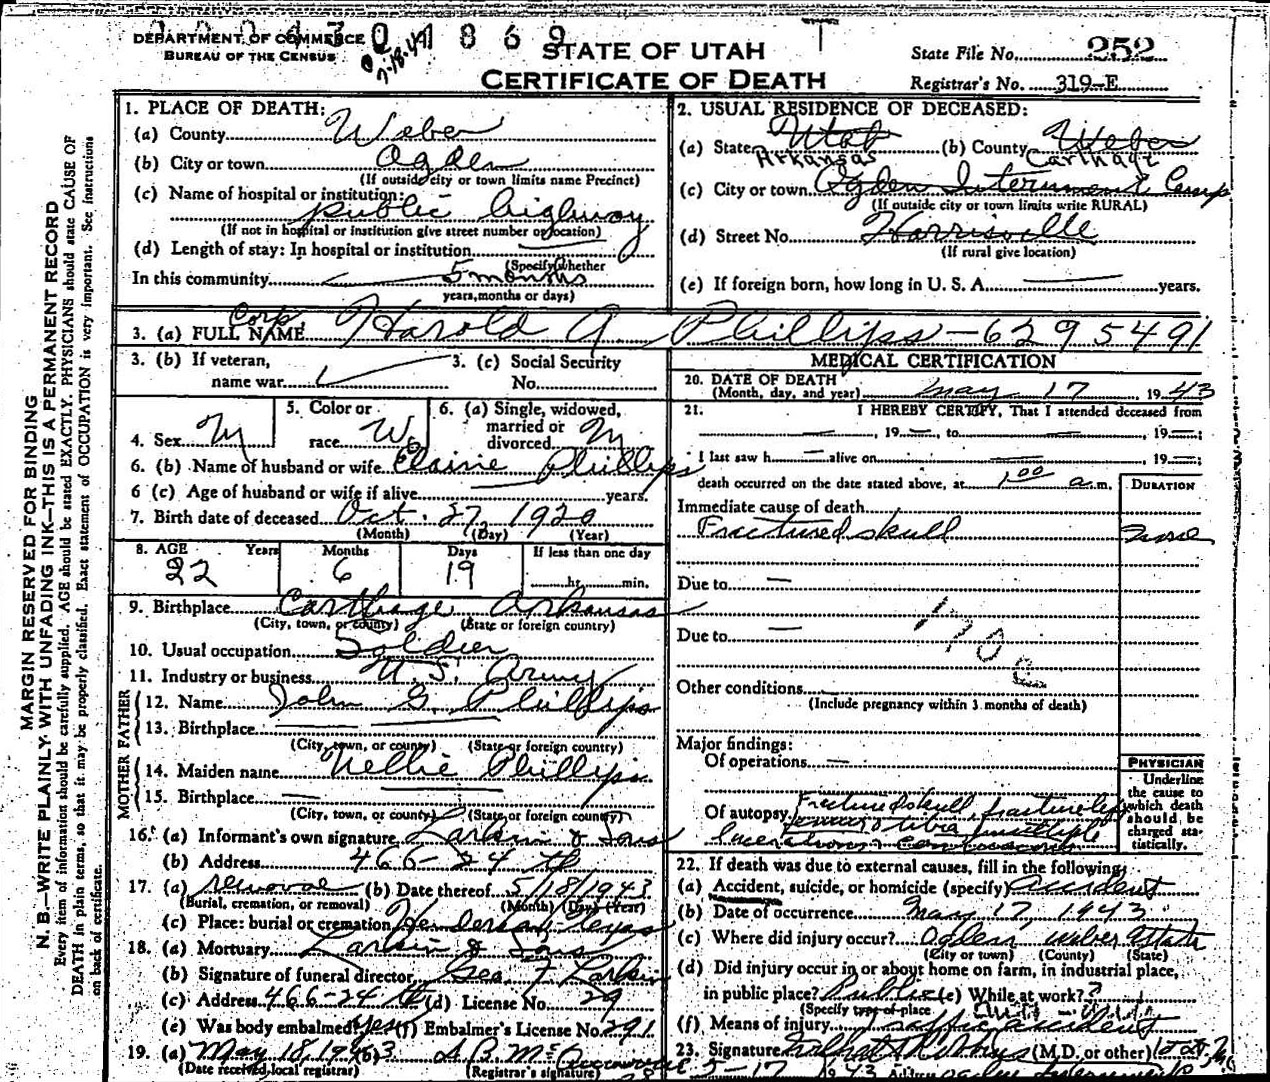 DEPARTMENT OF COMMERCE
BUREAU OF THE CENSUS
7-18-47
8 6 9
STATE OF UTAH
CERTIFICATE OF DEATH
State File No. 252
Registrar's No. 319-E
MARGIN RESERVED FOR BINDING
N. B.—WRITE PLAINLY, WITH UNFADING INK—THIS IS A PERMANENT RECORD
Every item of information should be carefully supplied. AGE should be stated EXACTLY. PHYSICIANS should state CAUSE OF
DEATH in plain terms, so that it may be properly classified. Exact statement of OCCUPATION is very important. See instructions
on back of certificate.
1. PLACE OF DEATH:
(a) County Weber
(b) City or town Ogden
(If outside city or town limits name Precinct)
(c) Name of hospital or institution:
public highway
(If not in hospital or institution give street number or location)
(d) Length of stay: In hospital or institution
(Specify whether
In this community 5 months
years, months or days)
2. USUAL RESIDENCE OF DECEASED:
(a) State Utah (b) County Weber
Arkansas Carthage
(c) City or town Ogden Internment Camp
(If outside city or town limits write RURAL)
(d) Street No. Harrisville
(If rural give location)
(e) If foreign born, how long in U. S. A. years.
3. (a) FULL NAME Corp Harold A Phillips — 6295491
3. (b) If veteran,
name war
3. (c) Social Security
No.
4. Sex M
5. Color or
race W
6. (a) Single, widowed,
married or
divorced M
6. (b) Name of husband or wife Elaine Phillips
6 (c) Age of husband or wife if alive years.
7. Birth date of deceased Oct. 27, 1920
(Month) (Day) (Year)
8. AGE Years Months Days If less than one day
22 6 19 hr. min.
9. Birthplace Carthage Arkansas
(City, town, or county) (State or foreign country)
10. Usual occupation Soldier
11. Industry or business U.S. Army
FATHER
12. Name John G. Phillips
13. Birthplace
(City, town, or county) (State or foreign country)
MOTHER
14. Maiden name Nellie Phillips
15. Birthplace
(City, town, or county) (State or foreign country)
16. (a) Informant's own signature Larkin & Sons
(b) Address 466-24 th
17. (a) removal (b) Date thereof 5/18/1943
(Burial, cremation, or removal) (Month) (Day) (Year)
(c) Place: burial or cremation Henderson Texas
18. (a) Mortuary Larkin & Sons
(b) Signature of funeral director Geo F Larkin
(c) Address 466-24 th (d) License No. 29
(e) Was body embalmed? yes (f) Embalmer's License No. 291
19. (a) May 18, 1943
(Date received, local registrar) (Registrar's signature)
MEDICAL CERTIFICATION
20. DATE OF DEATH
(Month, day, and year) May 17 1943
21. I HEREBY CERTIFY, That I attended deceased from
, 19 , to , 19 ;
I last saw h alive on , 19 ;
death occurred on the date stated above, at 1:00 a.m.
DURATION
Immediate cause of death
Fractured skull
Due to
Due to
170 e
Other conditions
(Include pregnancy within 3 months of death)
Major findings:
Of operations
Of autopsy Fractured skull, fracture left
femur & tibia multiple
lacerations
PHYSICIAN
Underline
the cause to
which death
should be
charged sta-
tistically.
22. If death was due to external causes, fill in the following:
(a) Accident, suicide, or homicide (specify) Accident
(b) Date of occurrence May 17 1943
(c) Where did injury occur? Ogden Weber Utah
(City or town) (County) (State)
(d) Did injury occur in or about home on farm, in industrial place,
in public place? Public (e) While at work? ?
(Specify type of place
(f) Means of injury Traffic accident
23. Signature (M.D. or other)
5-17 1943